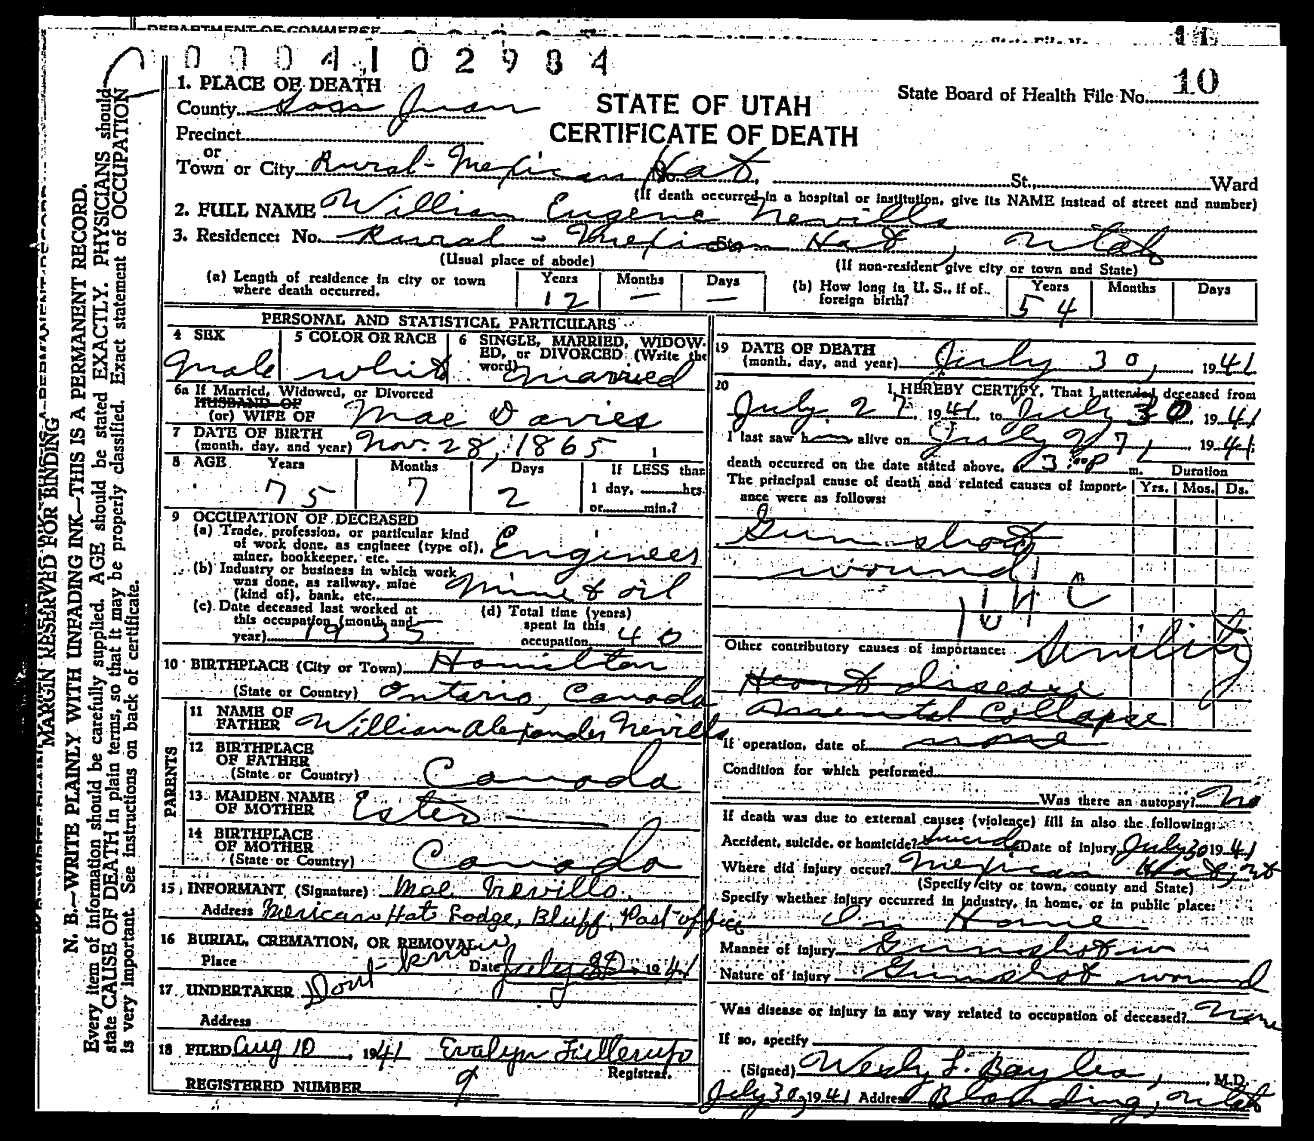 DEPARTMENT OF COMMERCE
State File No. 11
0004102984
1. PLACE OF DEATH
County San Juan
STATE OF UTAH
CERTIFICATE OF DEATH
State Board of Health File No. 10
Precinct
or
Town or City Rural - Mexican Hat, St., Ward
(If death occurred in a hospital or institution, give its NAME instead of street and number)
2. FULL NAME William Eugene Nevills
3. Residence: No. Rural - Mexican Hat, Utah
(Usual place of abode) (If non-resident give city or town and State)
(a) Length of residence in city or town where death occurred. Years 12 Months — Days —
(b) How long in U. S., if of foreign birth? Years 54 Months Days
PERSONAL AND STATISTICAL PARTICULARS
4 SEX Male
5 COLOR OR RACE white
6 SINGLE, MARRIED, WIDOWED, or DIVORCED (Write the word) Married
6a If Married, Widowed, or Divorced
HUSBAND OF
(or) WIFE OF Mae Davies
7 DATE OF BIRTH
(month, day, and year) Nov. 28, 1865
8 AGE Years 75 Months 7 Days 2 If LESS than 1 day, hrs. or min.?
9 OCCUPATION OF DECEASED
(a) Trade, profession, or particular kind
of work done, as engineer (type of),
miner, bookkeeper, etc. Engineer
(b) Industry or business in which work
was done, as railway, mine
(kind of), bank, etc. Mine & oil
(c) Date deceased last worked at
this occupation (month and
year) 1935
(d) Total time (years)
spent in this
occupation 40
10 BIRTHPLACE (City or Town) Hamilton
(State or Country) Ontario, Canada
PARENTS
11 NAME OF
FATHER William Alexander Nevills
12 BIRTHPLACE
OF FATHER
(State or Country) Canada
13. MAIDEN NAME
OF MOTHER Ester —
14 BIRTHPLACE
OF MOTHER
(State or Country) Canada
15 INFORMANT (Signature) Mae Nevills.
Address Mexican Hat Lodge, Bluff, Post office
16 BURIAL, CREMATION, OR REMOVAL
Place Dont know Date July 30, 1941
17 UNDERTAKER
Address
18 FILED Aug 10, 1941 Evalyn Fillerup
Registrar.
REGISTERED NUMBER 9
19 DATE OF DEATH
(month, day, and year) July 30, 1941
20 I HEREBY CERTIFY, That I attended deceased from
July 27, 1941 to July 30, 1941
I last saw h alive on July 27, 1941
death occurred on the date stated above, at 3:00 P m. Duration
The principal cause of death and related causes of importance were as follows: Yrs. Mos. Ds.
Gunshot
wound
164 C
Other contributory causes of importance: Senility
Heart disease
Mental Collapse
If operation, date of none
Condition for which performed
Was there an autopsy? No
If death was due to external causes (violence) fill in also the following:
Accident, suicide, or homicide? Suicide Date of injury July 30 1941
Where did injury occur? Mexican Hat, Ut
(Specify city or town, county and State)
Specify whether injury occurred in industry, in home, or in public place:
In Home
Manner of injury Gunshot w
Nature of injury Gunshot wound
Was disease or injury in any way related to occupation of deceased? None
If so, specify
(Signed) L. Bayles, M.D.
July 30, 1941 Address Blanding, Utah
MARGIN RESERVED FOR BINDING
N. B.—WRITE PLAINLY WITH UNFADING INK—THIS IS A PERMANENT RECORD.
Every item of information should be carefully supplied. AGE should be stated EXACTLY. PHYSICIANS should
state CAUSE OF DEATH in plain terms, so that it may be properly classified. Exact statement of OCCUPATION
is very important. See instructions on back of certificate.